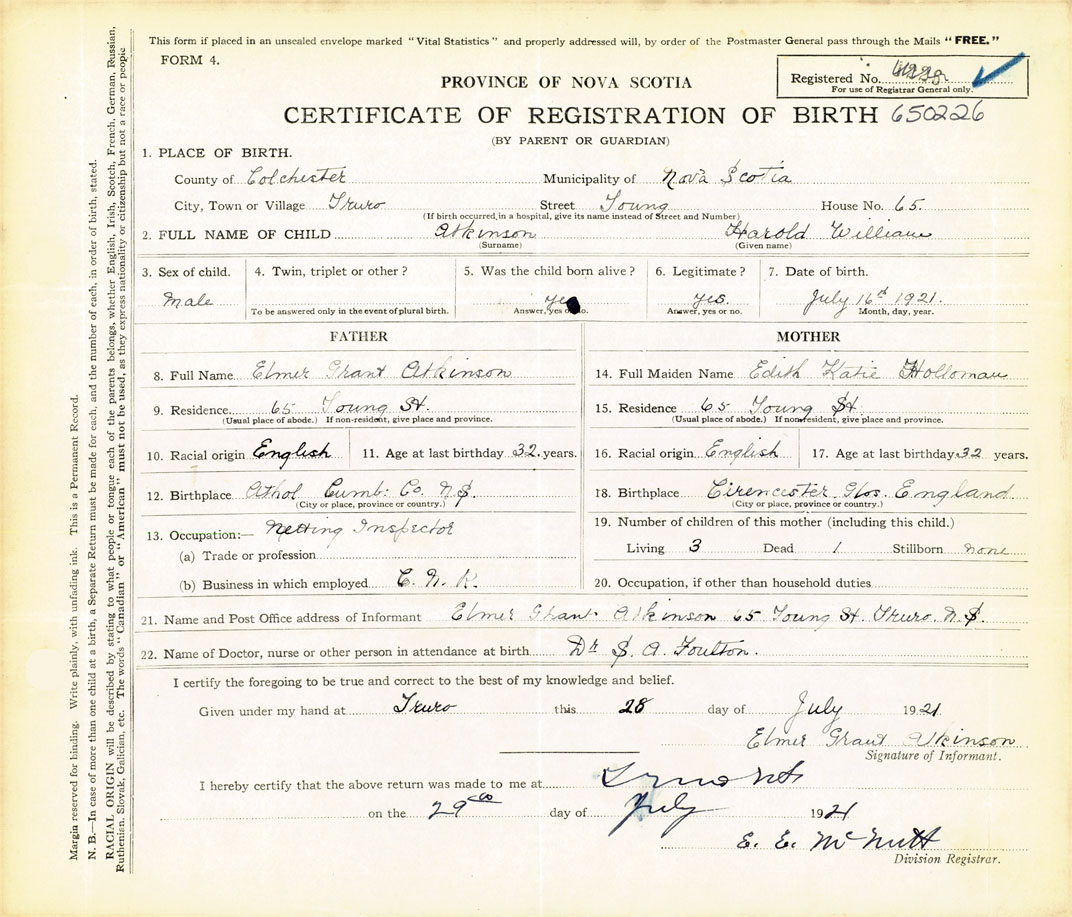 This form if placed in an unsealed envelope marked "Vital Statistics" and properly addressed will, by order of the Postmaster General pass through the Mails "FREE."
FORM 4.
PROVINCE OF NOVA SCOTIA
Registered No.
For use of Registrar General only.
CERTIFICATE OF REGISTRATION OF BIRTH 650226
(BY PARENT OR GUARDIAN)
1. PLACE OF BIRTH.
County of Colchester Municipality of Nova Scotia
City, Town or Village Truro Street Young House No. 65.
(If birth occurred in a hospital, give its name instead of Street and Number)
2. FULL NAME OF CHILD Atkinson Harold William
(Surname) (Given name)
3. Sex of child. 4. Twin, triplet or other? 5. Was the child born alive? 6. Legitimate? 7. Date of birth.
Male yes yes. July 16th 1921.
To be answered only in the event of plural birth. Answer, yes or no. Answer, yes or no. Month, day, year.
FATHER
8. Full Name Elmer Grant Atkinson
9. Residence 65 Young St.
(Usual place of abode.) If non-resident, give place and province.
10. Racial origin English 11. Age at last birthday 32. years.
12. Birthplace Athol Cumb: Co. N.S.
(City or place, province or country.)
13. Occupation:— Netting Inspector
(a) Trade or profession
(b) Business in which employed C. N. R.
MOTHER
14. Full Maiden Name Edith Katie Holloman
15. Residence 65 Young St.
(Usual place of abode.) If non-resident, give place and province.
16. Racial origin English 17. Age at last birthday 32 years.
18. Birthplace Cirencister Glos. England
(City or place, province or country.)
19. Number of children of this mother (including this child.)
Living 3 Dead 1 Stillborn none
20. Occupation, if other than household duties
21. Name and Post Office address of Informant Elmer Grant Atkinson 65 Young St. Truro. N.S.
22. Name of Doctor, nurse or other person in attendance at birth Dr S. A. Foulton.
I certify the foregoing to be true and correct to the best of my knowledge and belief.
Given under my hand at Truro this 28 day of July 1921
Elmer Grant Atkinson
Signature of Informant.
I hereby certify that the above return was made to me at Truro NS
on the 29th day of July 1921
E. E. McNutt
Division Registrar.
Margin reserved for binding. Write plainly, with unfading ink. This is a Permanent Record.
N. B.—In case of more than one child at a birth, a Separate Return must be made for each, and the number of each, in order of birth, stated.
RACIAL ORIGIN will be described by stating to what people or tongue each of the parents belongs, whether English, Irish, Scotch, French, German, Russian,
Ruthenian, Slovak, Galician, etc. The words "Canadian" or "American" must not be used, as they express nationality or citizenship but not a race or people